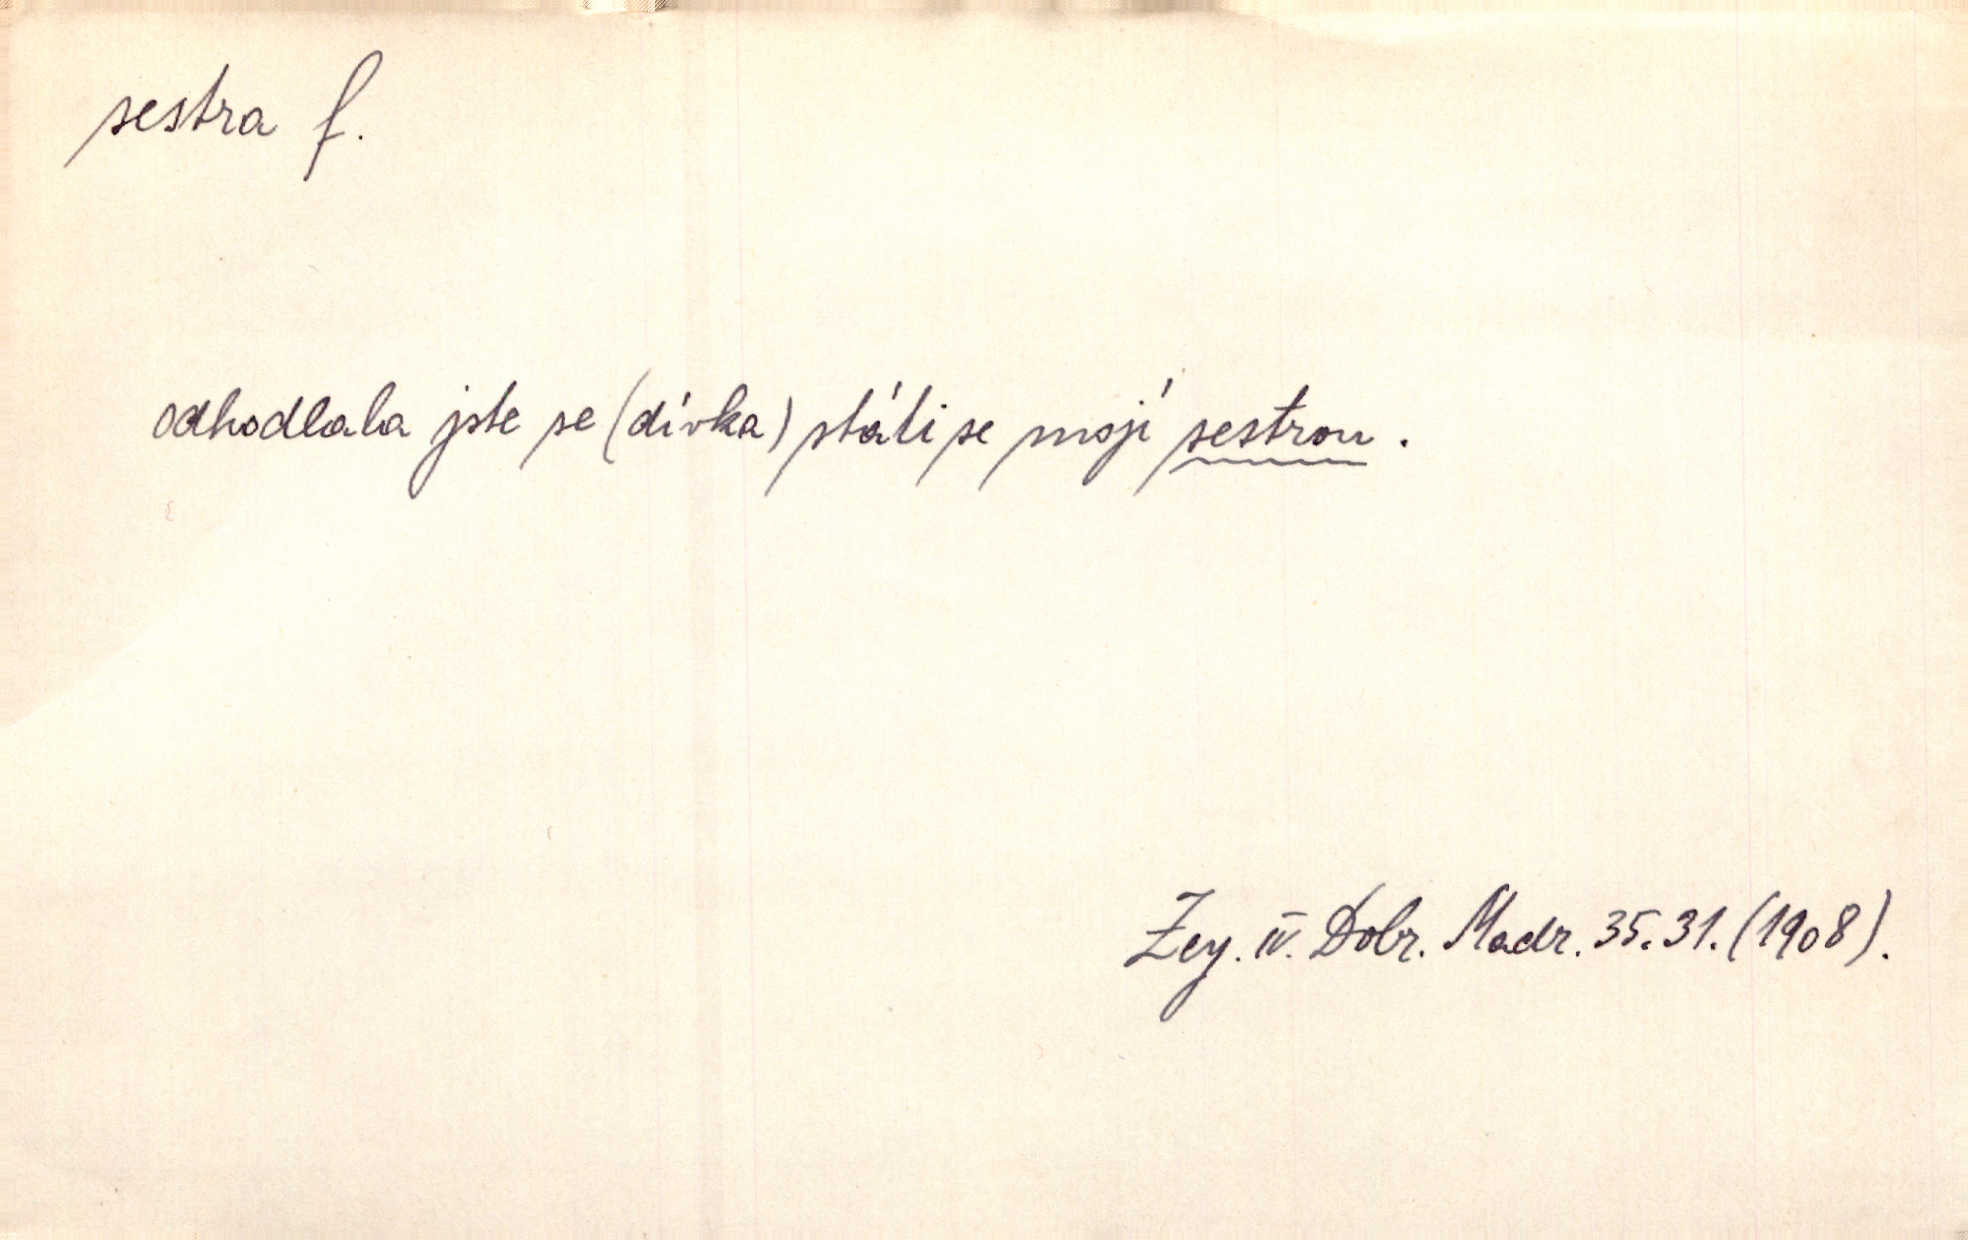 sestra f.
odhodlala jste se (dívka) státi se mojí sestrou.
Zey. IV. Dobr. Madr. 35. 31. (1908).